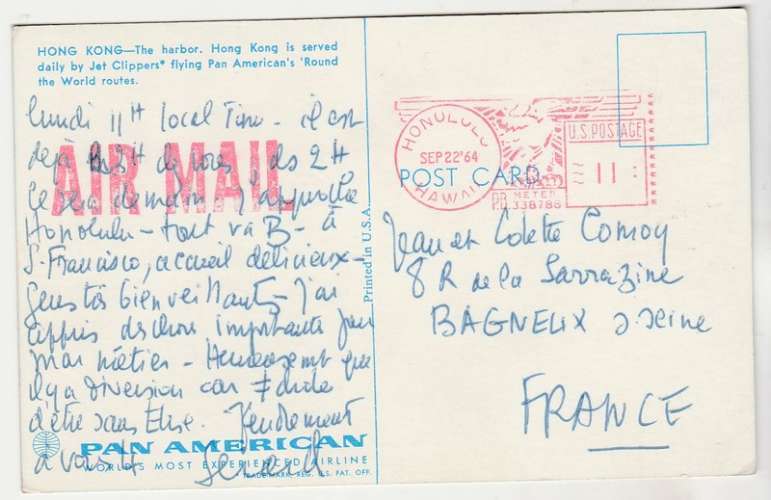 HONG KONG—The harbor. Hong Kong is served
daily by Jet Clippers* flying Pan American's 'Round
the World routes.
lundi 11H local Time - il est
déjà 2H de
ce sera demain. J'approche
Honolulu - tout va B - à
S. Francisco, accueil délicieux -
Gens très bienveillants - j'ai
appris des choses importantes pour
mon métier - Heureusement que
il y a diversion car dure
d'être sans Elise. Tendrement
à vous 4 Gérard
AIR MAIL
PAN AMERICAN
WORLD'S MOST EXPERIENCED AIRLINE
TRADEMARK, REG. U.S. PAT. OFF.
Printed in U.S.A.
HONOLULU
SEP 22 '64
HAWAII
U.S. POSTAGE
11
METER
POST CARD
Jean et Colette Comoy
8 R de la Sarrazine
BAGNEUX s. Seine
FRANCE